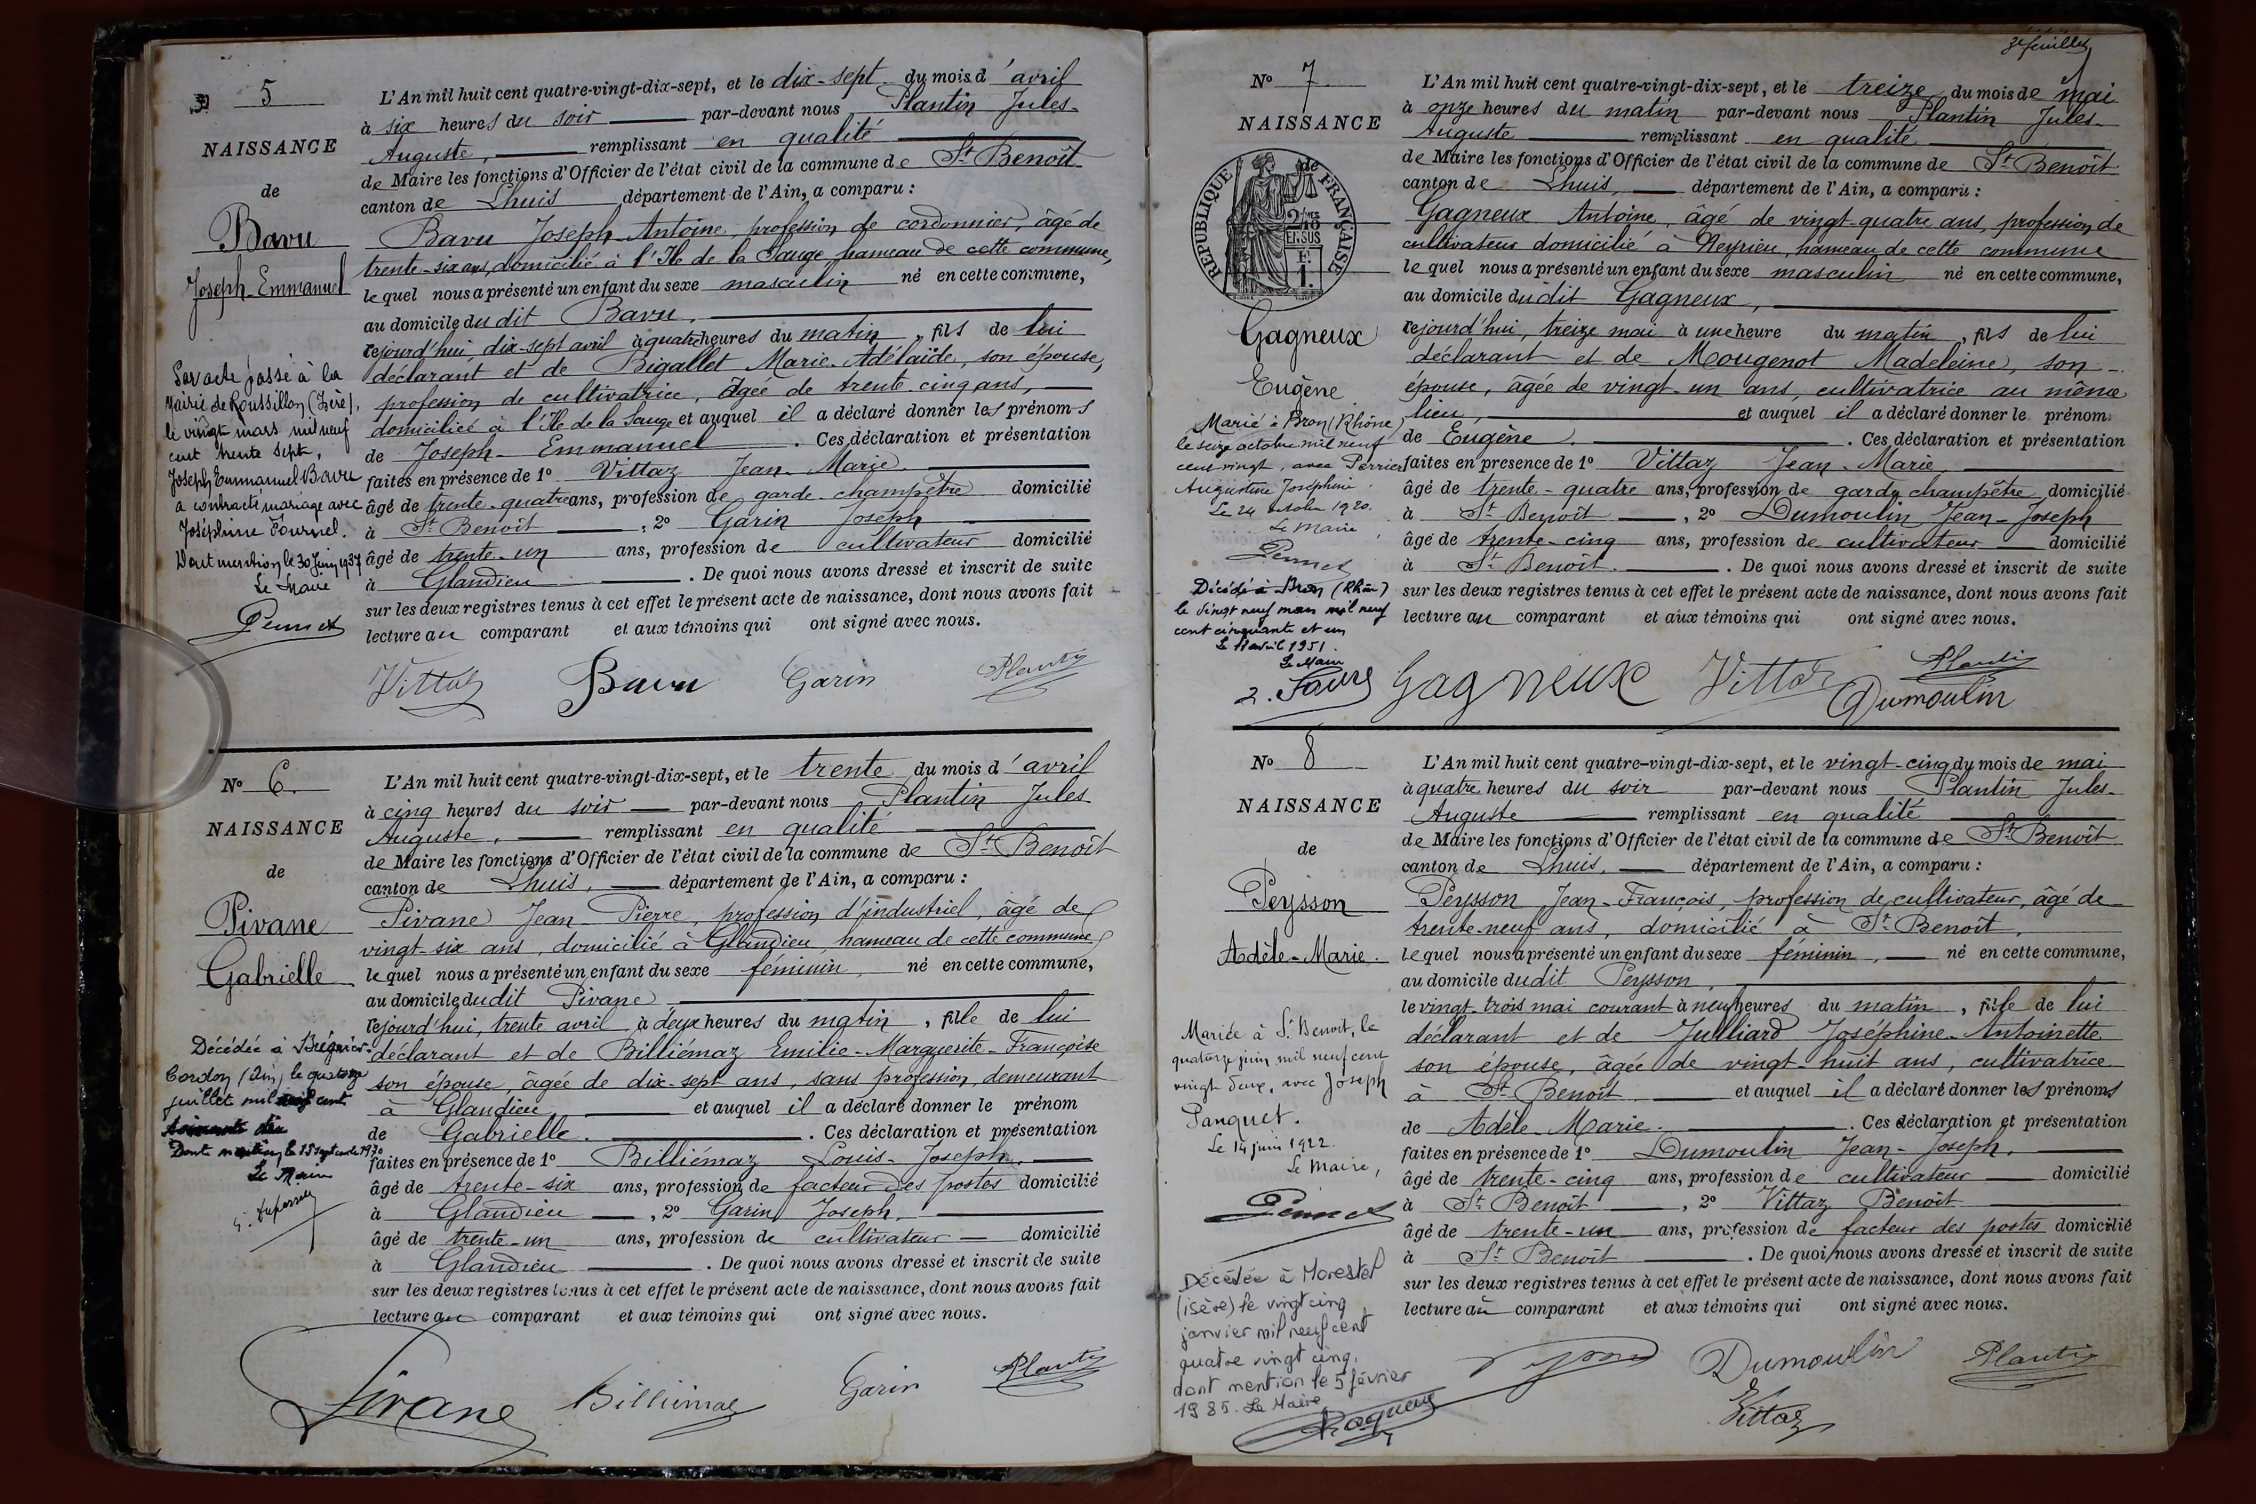 5
NAISSANCE
de
Bavu
Joseph-Emmanuel
Par acte passé à la
Mairie de Roussillon (Isère),
le vingt mars mil neuf
cent trente sept,
Joseph Emmanuel Bavu
a contracté mariage avec
Joséphine Fournel.
Dont mention le 30 Juin 1937
Le Maire
Pennet
L'An mil huit cent quatre-vingt-dix-sept, et le dix-sept du mois d'avril
à six heures du soir par-devant nous Plantin Jules-
Auguste, remplissant en qualité
de Maire les fonctions d'Officier de l'état civil de la commune de St Benoît
canton de Lhuis département de l'Ain, a comparu :
Bavu Joseph-Antoine, profession de cordonnier, âgé de
trente-six ans, domicilié à l'Ile de la Sauge hameau de cette commune,
lequel nous a présenté un enfant du sexe masculin né en cette commune,
au domicile du dit Bavu.
cejourd'hui, dix-sept avril à quatre heures du matin, fils de lui
déclarant et de Bigallet Marie-Adélaïde, son épouse,
profession de cultivatrice, âgée de trente cinq ans,
domiciliée à l'Ile de la Sauge et auquel il a déclaré donner les prénoms
de Joseph-Emmanuel. Ces déclaration et présentation
faites en présence de 1° Vittaz Jean-Marie
âgé de trente-quatre ans, profession de garde-champêtre domicilié
à St Benoît, 2° Garin Joseph
âgé de trente-un ans, profession de cultivateur domicilié
à Glandieu. De quoi nous avons dressé et inscrit de suite
sur les deux registres tenus à cet effet le présent acte de naissance, dont nous avons fait
lecture au comparant et aux témoins qui ont signé avec nous.
Vittaz Bavu Garin Plantin
No 6.
NAISSANCE
de
Pivane
Gabrielle
Décédée à Brégnier-
Cordon (Ain) le quatorze
juillet mil neuf cent
soixante dix
Dont mention le 15 septembre 1970
Le Maire
L'An mil huit cent quatre-vingt-dix-sept, et le trente du mois d'avril
à cinq heures du soir par-devant nous Plantin Jules
Auguste, remplissant en qualité
de Maire les fonctions d'Officier de l'état civil de la commune de St Benoît
canton de Lhuis. département de l'Ain, a comparu :
Pivane Jean Pierre, profession d'industriel, âgé de
vingt-six ans, domicilié à Glandieu, hameau de cette commune
lequel nous a présenté un enfant du sexe féminin, né en cette commune,
au domicile dudit Pivane
cejourd'hui, trente avril à deux heures du matin, fille de lui
déclarant et de Billiémaz Emilie-Marguerite-Françoise
son épouse, âgée de dix-sept ans, sans profession, demeurant
à Glandieu et auquel il a déclaré donner le prénom
de Gabrielle. Ces déclaration et présentation
faites en présence de 1° Billiémaz Louis-Joseph.
âgé de trente-six ans, profession de facteur des postes domicilié
à Glandieu, 2° Garin Joseph.
âgé de trente-un ans, profession de cultivateur domicilié
à Glandieu. De quoi nous avons dressé et inscrit de suite
sur les deux registres tenus à cet effet le présent acte de naissance, dont nous avons fait
lecture au comparant et aux témoins qui ont signé avec nous.
Pivane Billiémaz Garin Plantin
3e feuillet
No 7
NAISSANCE
de
RÉPUBLIQUE FRANÇAISE
Gagneux
Eugène
Marié à Bron (Rhône)
le seize octobre mil neuf
cent vingt, avec Perrier
Augustine Joséphine.
Le 24 octobre 1920.
Le Maire,
Pennet
Décédé à Bron (Rhône)
le vingt neuf mars mil neuf
cent cinquante et un
Le 11 avril 1951.
Le Maire
L'An mil huit cent quatre-vingt-dix-sept, et le treize du mois de mai
à onze heures du matin par-devant nous Plantin Jules-
Auguste remplissant en qualité
de Maire les fonctions d'Officier de l'état civil de la commune de St Benoît
canton de Lhuis, département de l'Ain, a comparu :
Gagneux Antoine, âgé de vingt-quatre ans, profession de
cultivateur domicilié à Neyrieu, hameau de cette commune
lequel nous a présenté un enfant du sexe masculin né en cette commune,
au domicile dudit Gagneux,
cejourd'hui, treize mai à une heure du matin, fils de lui
déclarant et de Mougenot Madeleine, son
épouse, âgée de vingt-un ans, cultivatrice au même
lieu, et auquel il a déclaré donner le prénom
de Eugène. Ces déclaration et présentation
faites en présence de 1° Vittaz Jean-Marie,
âgé de trente-quatre ans, profession de garde champêtre domicilié
à St Benoît, 2° Dumoulin Jean-Joseph
âgé de trente-cinq ans, profession de cultivateur domicilié
à St Benoît. De quoi nous avons dressé et inscrit de suite
sur les deux registres tenus à cet effet le présent acte de naissance, dont nous avons fait
lecture au comparant et aux témoins qui ont signé avec nous.
Gagneux Vittaz Plantin
Dumoulin
No 8
NAISSANCE
de
Peysson
Adèle-Marie.
Mariée à St Benoit, le
quatorze juin mil neuf cent
vingt deux, avec Joseph
Panquet.
Le 14 juin 1922.
Le Maire,
Pennet
Décédée à Morestel
(isère) le vingt cinq
janvier mil neuf cent
quatre vingt cinq.
dont mention le 5 février
1985. Le Maire
L'An mil huit cent quatre-vingt-dix-sept, et le vingt-cinq du mois de mai
à quatre heures du soir par-devant nous Plantin Jules-
Auguste remplissant en qualité
de Maire les fonctions d'Officier de l'état civil de la commune de St Benoît
canton de Lhuis. département de l'Ain, a comparu :
Peysson Jean-François, profession de cultivateur, âgé de
trente-neuf ans, domicilié à St Benoît.
lequel nous a présenté un enfant du sexe féminin, né en cette commune,
au domicile dudit Peysson,
le vingt-trois mai courant à neuf heures du matin, fille de lui
déclarant et de Julliard Joséphine-Antoinette
son épouse, âgée de vingt-huit ans, cultivatrice
à St Benoît et auquel il a déclaré donner les prénoms
de Adèle-Marie. Ces déclaration et présentation
faites en présence de 1° Dumoulin Jean-Joseph,
âgé de trente-cinq ans, profession de cultivateur domicilié
à St Benoît, 2° Vittaz Benoît
âgé de trente-un ans, profession de facteur des postes domicilié
à St Benoît. De quoi nous avons dressé et inscrit de suite
sur les deux registres tenus à cet effet le présent acte de naissance, dont nous avons fait
lecture au comparant et aux témoins qui ont signé avec nous.
Dumoulin Plantin
Vittaz